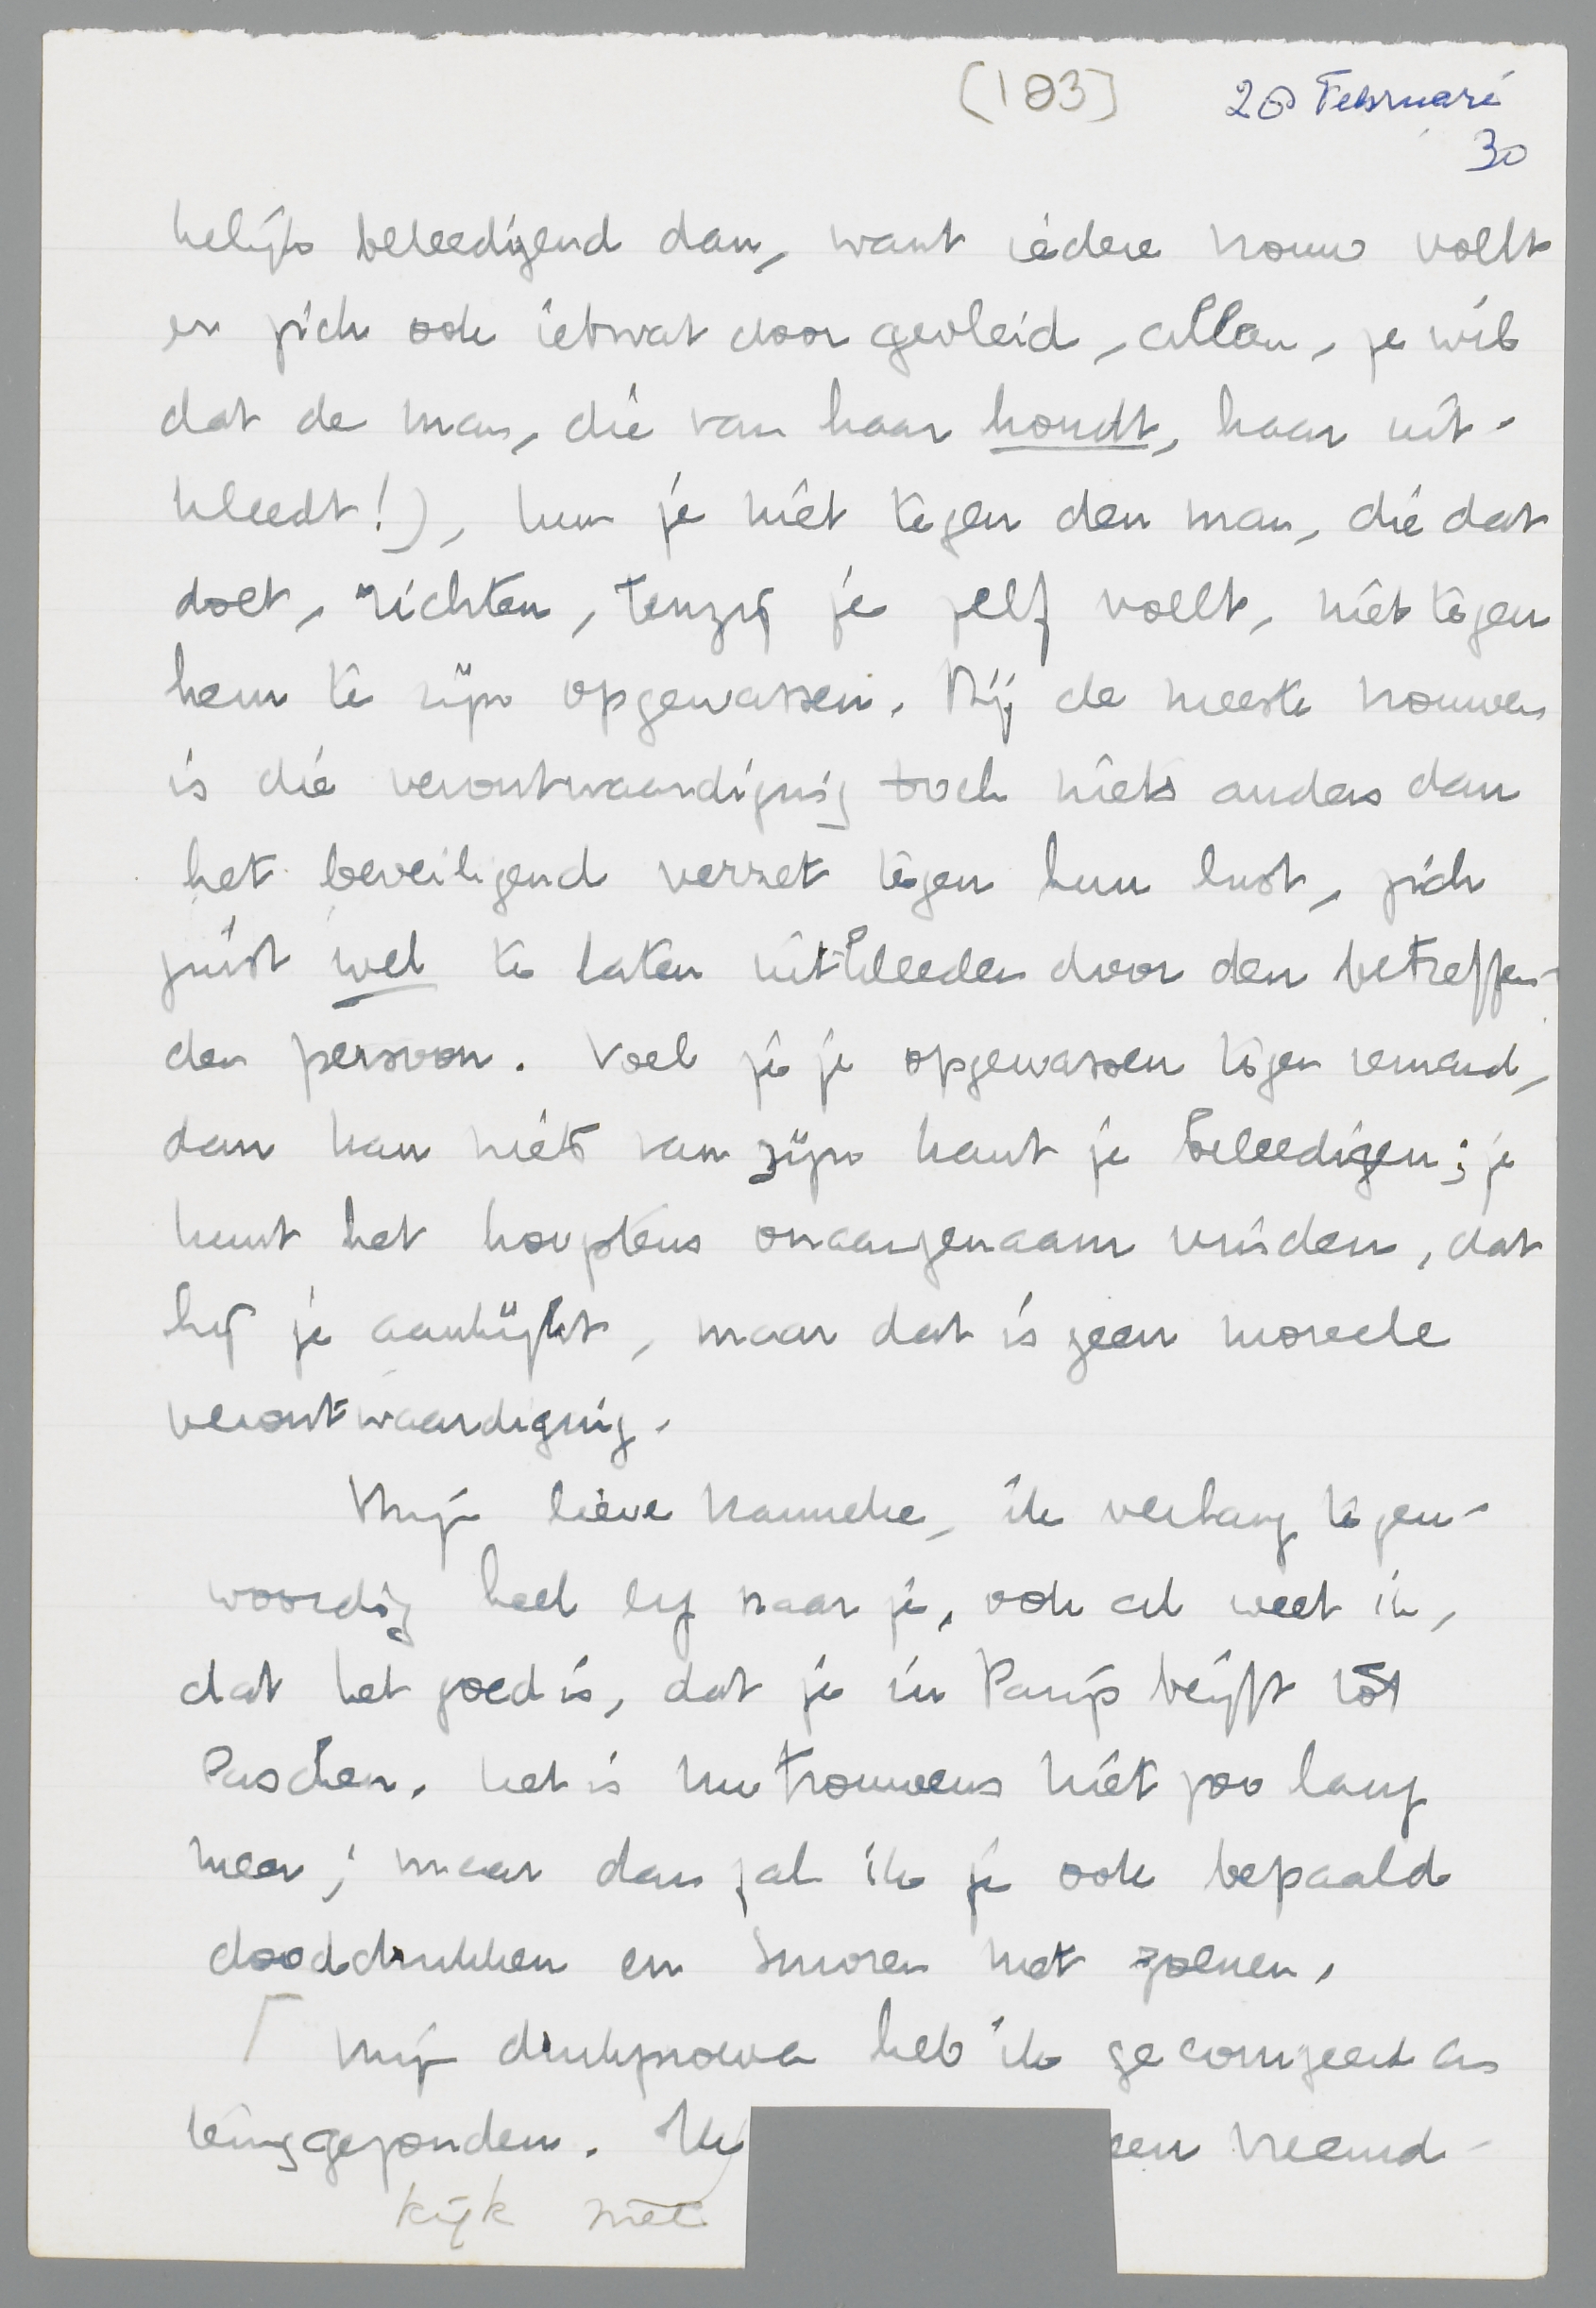 (183) 20 Februari
30
helijk beleedigend dan, want iedere vrouw voelt
er zich ook ietwat door gevleid, allen, ze wil
dat de man, die van haar houdt, haar uit-
kleedt!), kun je niet tegen den man, die dat
doet, richten, tenzij je zelf voelt, niet tegen
hem te zijn opgewassen. Bij de meeste vrouwen
is die verontwaardiging toch niets anders dan
het beveiligend verzet tegen hun lust, zich
juist wel te laten uitkleeden door den betreffen-
den persoon. Voel je je opgewassen tegen iemand,
dan kan niets van zijn kant je beleedigen; je
kunt het hoogstens onaangenaam vinden, dat
hij je aankijkt, maar dat is geen moreele
verontwaardiging.
Mijn lieve Hanneke, ik verlang tegen-
woordig heel erg naar je, ook al weet ik,
dat het goed is, dat je in Parijs blijft tot
Paschen. Het is nu trouwens niet zoo lang
meer; maar dan zal ik je ook bepaald
dooddrukken en smoren met zoenen.
Mijn drukproeven heb ik gecorrigeerd en
teruggezonden. een vreemd-
kijk niet